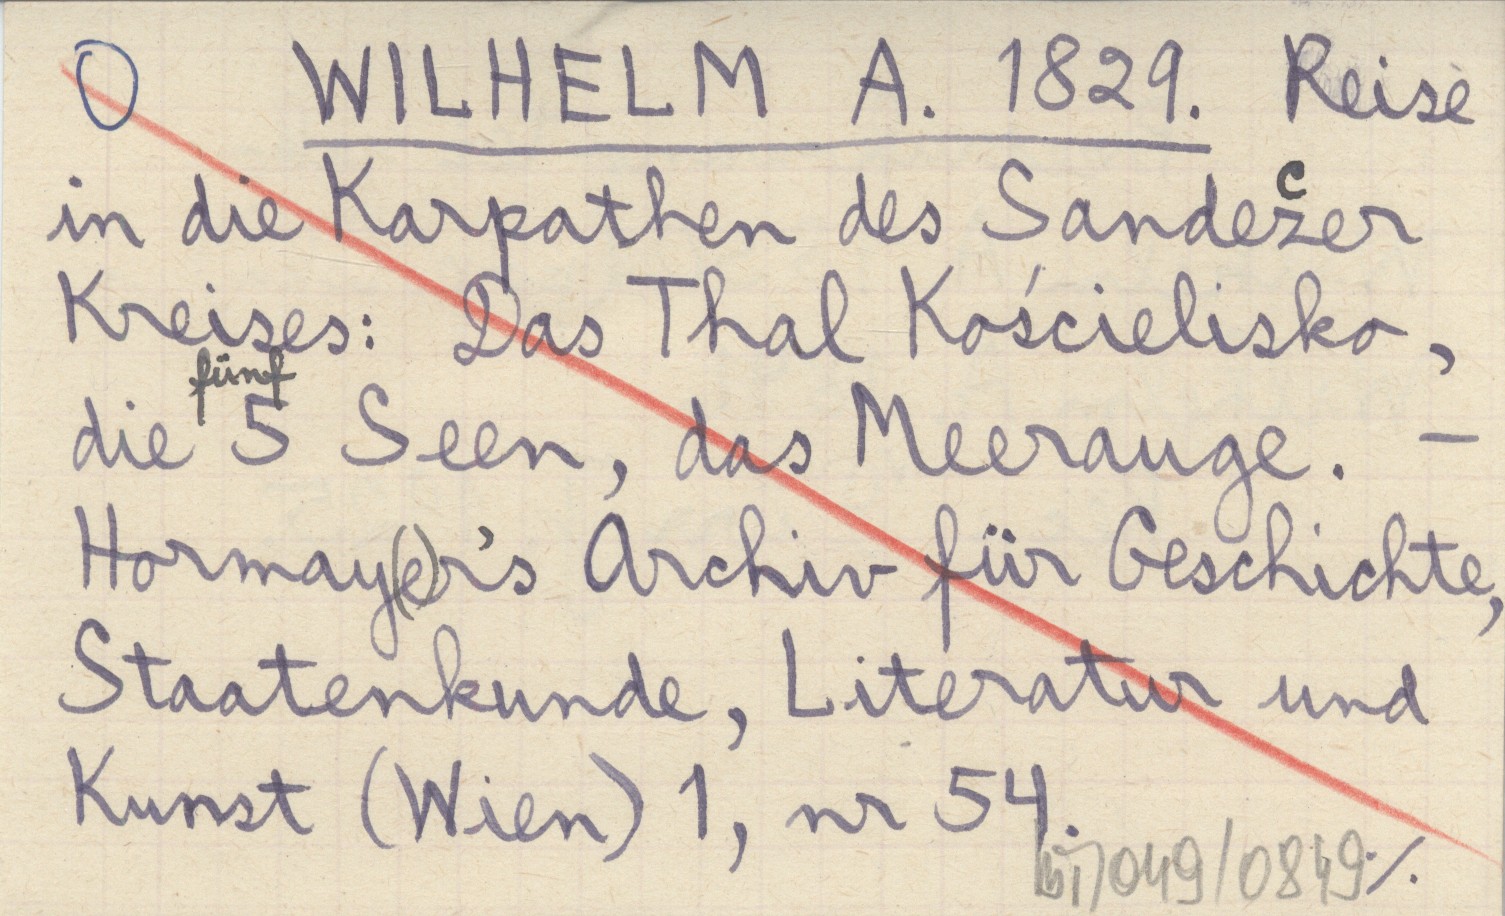 O WILHELM A. 1829. Reise
in die Karpathen des Sandezer
c
Kreises: Das Thal Kościelisko,
fünf
die 5 Seen, das Meerauge. –
Hormay(e)r's Archiv für Geschichte,
Staatenkunde, Literatur und
Kunst (Wien) 1, nr 54.
049/0849 ·/.